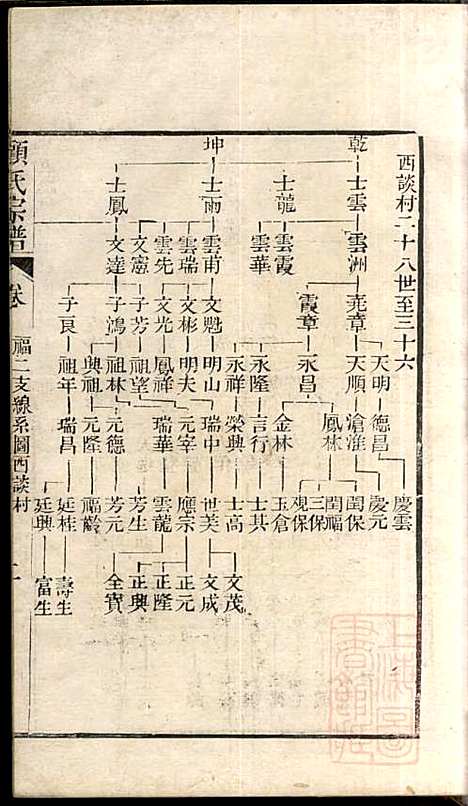 西談村二十八世至三十六
乾 坤
士雲 士龍 士雨 士鳳
雲洲 雲霞 雲華 雲甫 雲瑞 雲先 文憲 文達
堯章 霞章 文魁 文彬 文光 子芳 子鴻 子良
天明 天順 永昌 永隆 永祥 明山 明夫 鳳祥 祖望 祖林 興祖 祖年
德昌 滄淮 鳳林 金林 言行 榮興 瑞中 元宰 瑞華 元德 元隆 瑞昌
慶雲 慶元 閏保 閏福 三保 觀保 玉倉 士其 士高 世美 應宗 雲龍 芳生 芳元 福齡 廷桂 廷興
文茂 文成 正元 正隆 正興 全寶 壽生 富生
顧氏宗譜
卷
福二支線系圖西談村